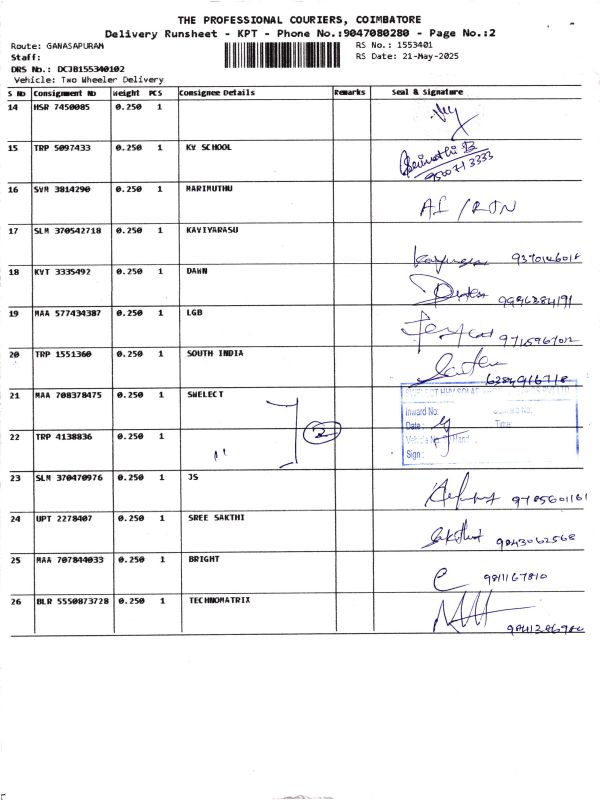 THE PROFESSIONAL COURIERS, COIMBATORE
Delivery Runsheet - KPT - Phone No.:9047080280 - Page No.:2
Route: GANASAPURAM
RS No.: 1553401
Staff:
RS Date: 21-May-2025
DRS No.: DCJB155340102
Vehicle: Two Wheeler Delivery
S No Consignment No Weight PCS Consignee Details Remarks Seal & Signature
14 HSR 7450085 0.250 1
15 TRP 5097433 0.250 1 KV SCHOOL
16 SVM 3814290 0.250 1 MARIMUTHU
17 SLM 370542718 0.250 1 KAVIYARASU
18 KVT 3335492 0.250 1 DAWN
9996284191
19 MAA 577434387 0.250 1 LGB
20 TRP 1551360 0.250 1 SOUTH INDIA
6284916718
21 MAA 708378475 0.250 1 SWELECT
Inward No:
2
Date:
Time:
22 TRP 4138836 0.250 1
"
Sign:
23 SLM 370470976 0.250 1 JS
24 UPT 2278407 0.250 1 SREE SAKTHI
9843062568
25 MAA 707844033 0.250 1 BRIGHT
9811167810
26 BLR 5550873728 0.250 1 TECHNOMATRIX